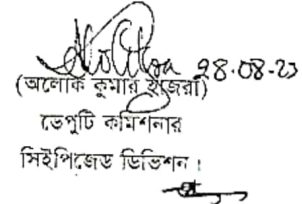 28-08-23
(অলোক কুমার হাজরা)
ডেপুটি কমিশনার
সিইপিজেড ডিভিশন।